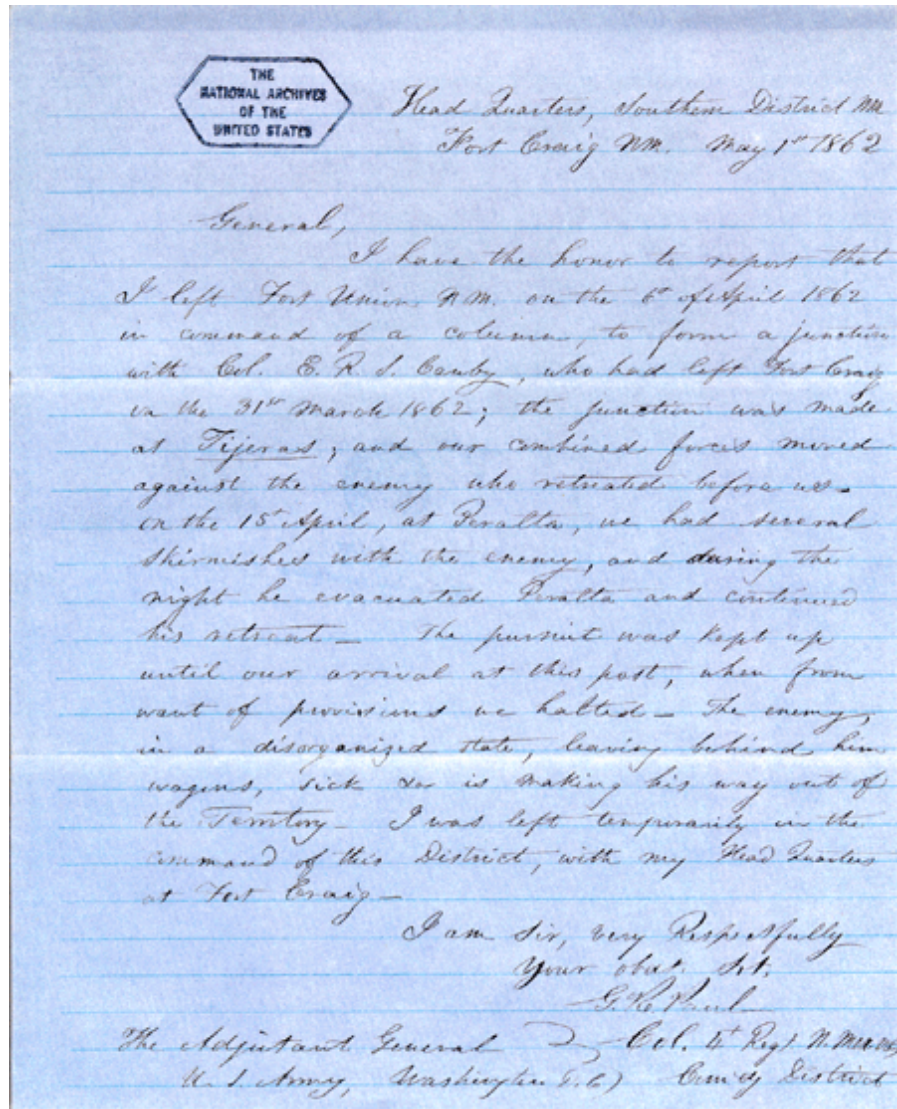 THE
NATIONAL ARCHIVES
OF THE
UNITED STATES
Head Quarters, Southern District NM
Fort Craig NM. May 1st 1862
General,
I have the honor to report that
I left Fort Union N.M. on the 6th of April 1862
in command of a column, to form a junction
with Col. E. R. S. Canby, who had left Fort Craig
on the 31st March 1862; the junction was made
at Tijeras, and our combined forces moved
against the enemy who retreated before us_
on the 15th April, at Peralta, we had several
skirmishes with the enemy, and during the
night he evacuated Peralta and continued
his retreat_ The pursuit was kept up
until our arrival at this post, when from
want of provisions we halted_ The enemy,
in a disorganized state, leaving behind him
wagons, sick &c is making his way out of
the Territory_ I was left temporarily in the
command of this District, with my Head Quarters
at Fort Craig_
I am Sir, very Respectfully
Your obdt. Svt.
G. R. Paul
The Adjutant General Col. 4th Regt N. Mex.
U. S. Army, Washington D.C. Comdg District